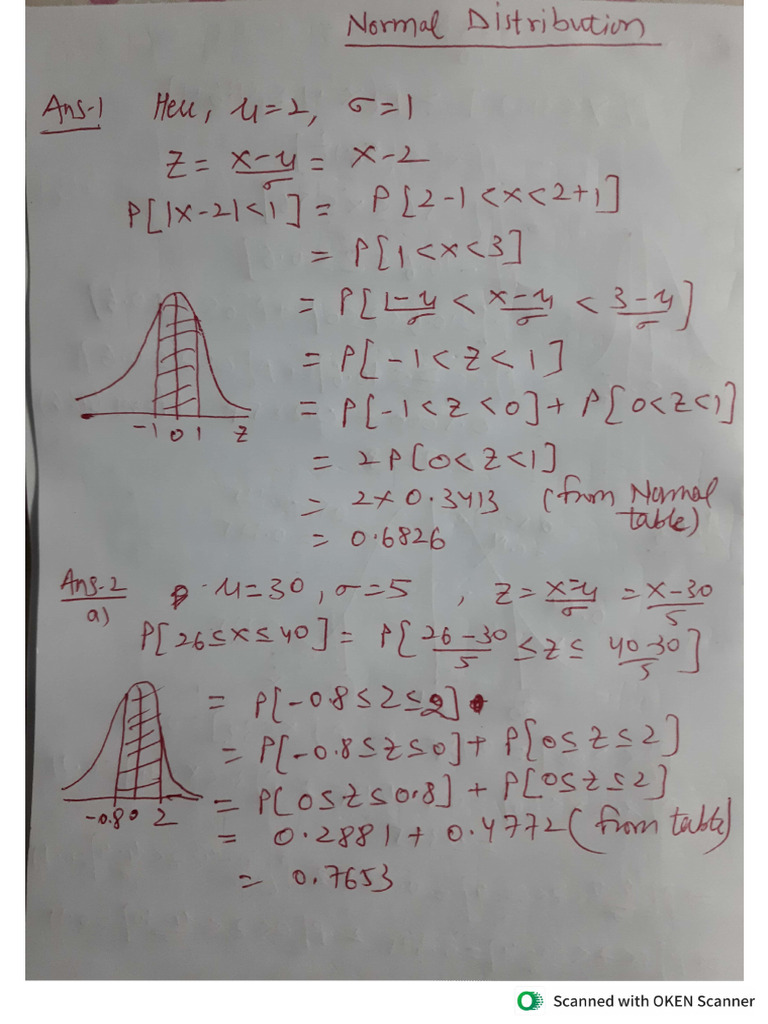 Normal Distribution
Ans-1 Here, μ=2, σ=1
Z = x-μ/σ = x-2
P[|x-2|<1] = P[2-1<x<2+1]
= P[1<x<3]
= P[1-μ/σ < x-μ/σ < 3-μ/σ]
= P[-1<z<1]
= P[-1<z<0] + P[0<z<1]
= 2P[0<z<1]
-1 0 1 z
= 2×0.3413 (from Normal table)
= 0.6826
Ans-2 μ=30, σ=5, z = x-μ/σ = x-30/5
a)
P[26≤x≤40] = P[26-30/5 ≤z≤ 40-30/5]
= P[-0.8≤z≤2]
= P[-0.8≤z≤0] + P[0≤z≤2]
= P[0≤z≤0.8] + P[0≤z≤2]
-0.8 0 2
= 0.2881 + 0.4772 (from table)
= 0.7653
Scanned with OKEN Scanner